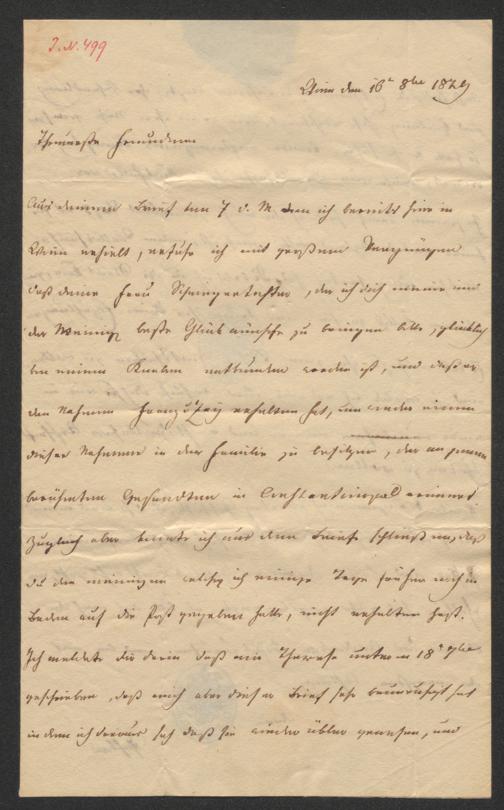 J.N. 499
Wien den 16t 8ber 1829
Theuerste Freundinn
Aus deinem Brief vom 7 d. M. den ich bereits hier in
Wien erhielt, ersehe ich mit großem Vergnügen
daß deine Frau Schwiegertochter, der ich dich meine und
der beste Glückwünsche zu bringen bitte, glücklich
von einem Knaben entbunden worden ist, und daß er
den Nahmen Franz erhalten hat, um wieder einen
dieser Nahmen in der Familie zu besitzen, der an jenen
berühmten Gesandten in Constantinopel erinnert
Zugleich aber konnte ich aus dem Briefe schließen, daß
du den meinigen welchen ich einige Tage früher noch in
Baden auf die Post gegeben hatte, nicht erhalten hast.
Ich meldete dir darin daß mir Therese unterm 18t
geschrieben, daß mich aber dieser Brief sehr beunruhigt hat
in dem ich daraus sah daß sie wieder übler gewesen, und